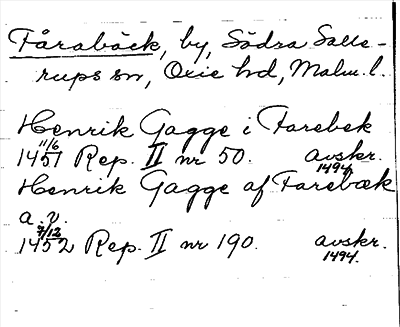 Fårabäck, by, Södra Salle-
rups sn, Oxie hd, Malm. l.
Henrik Gagge i Farebek
11/6
1451 Rep. II nr 50. avskr. 1494.
Henrik Gagge af Farebæk
a. v.
7/12
1452 Rep. II nr 190. avskr. 1494.